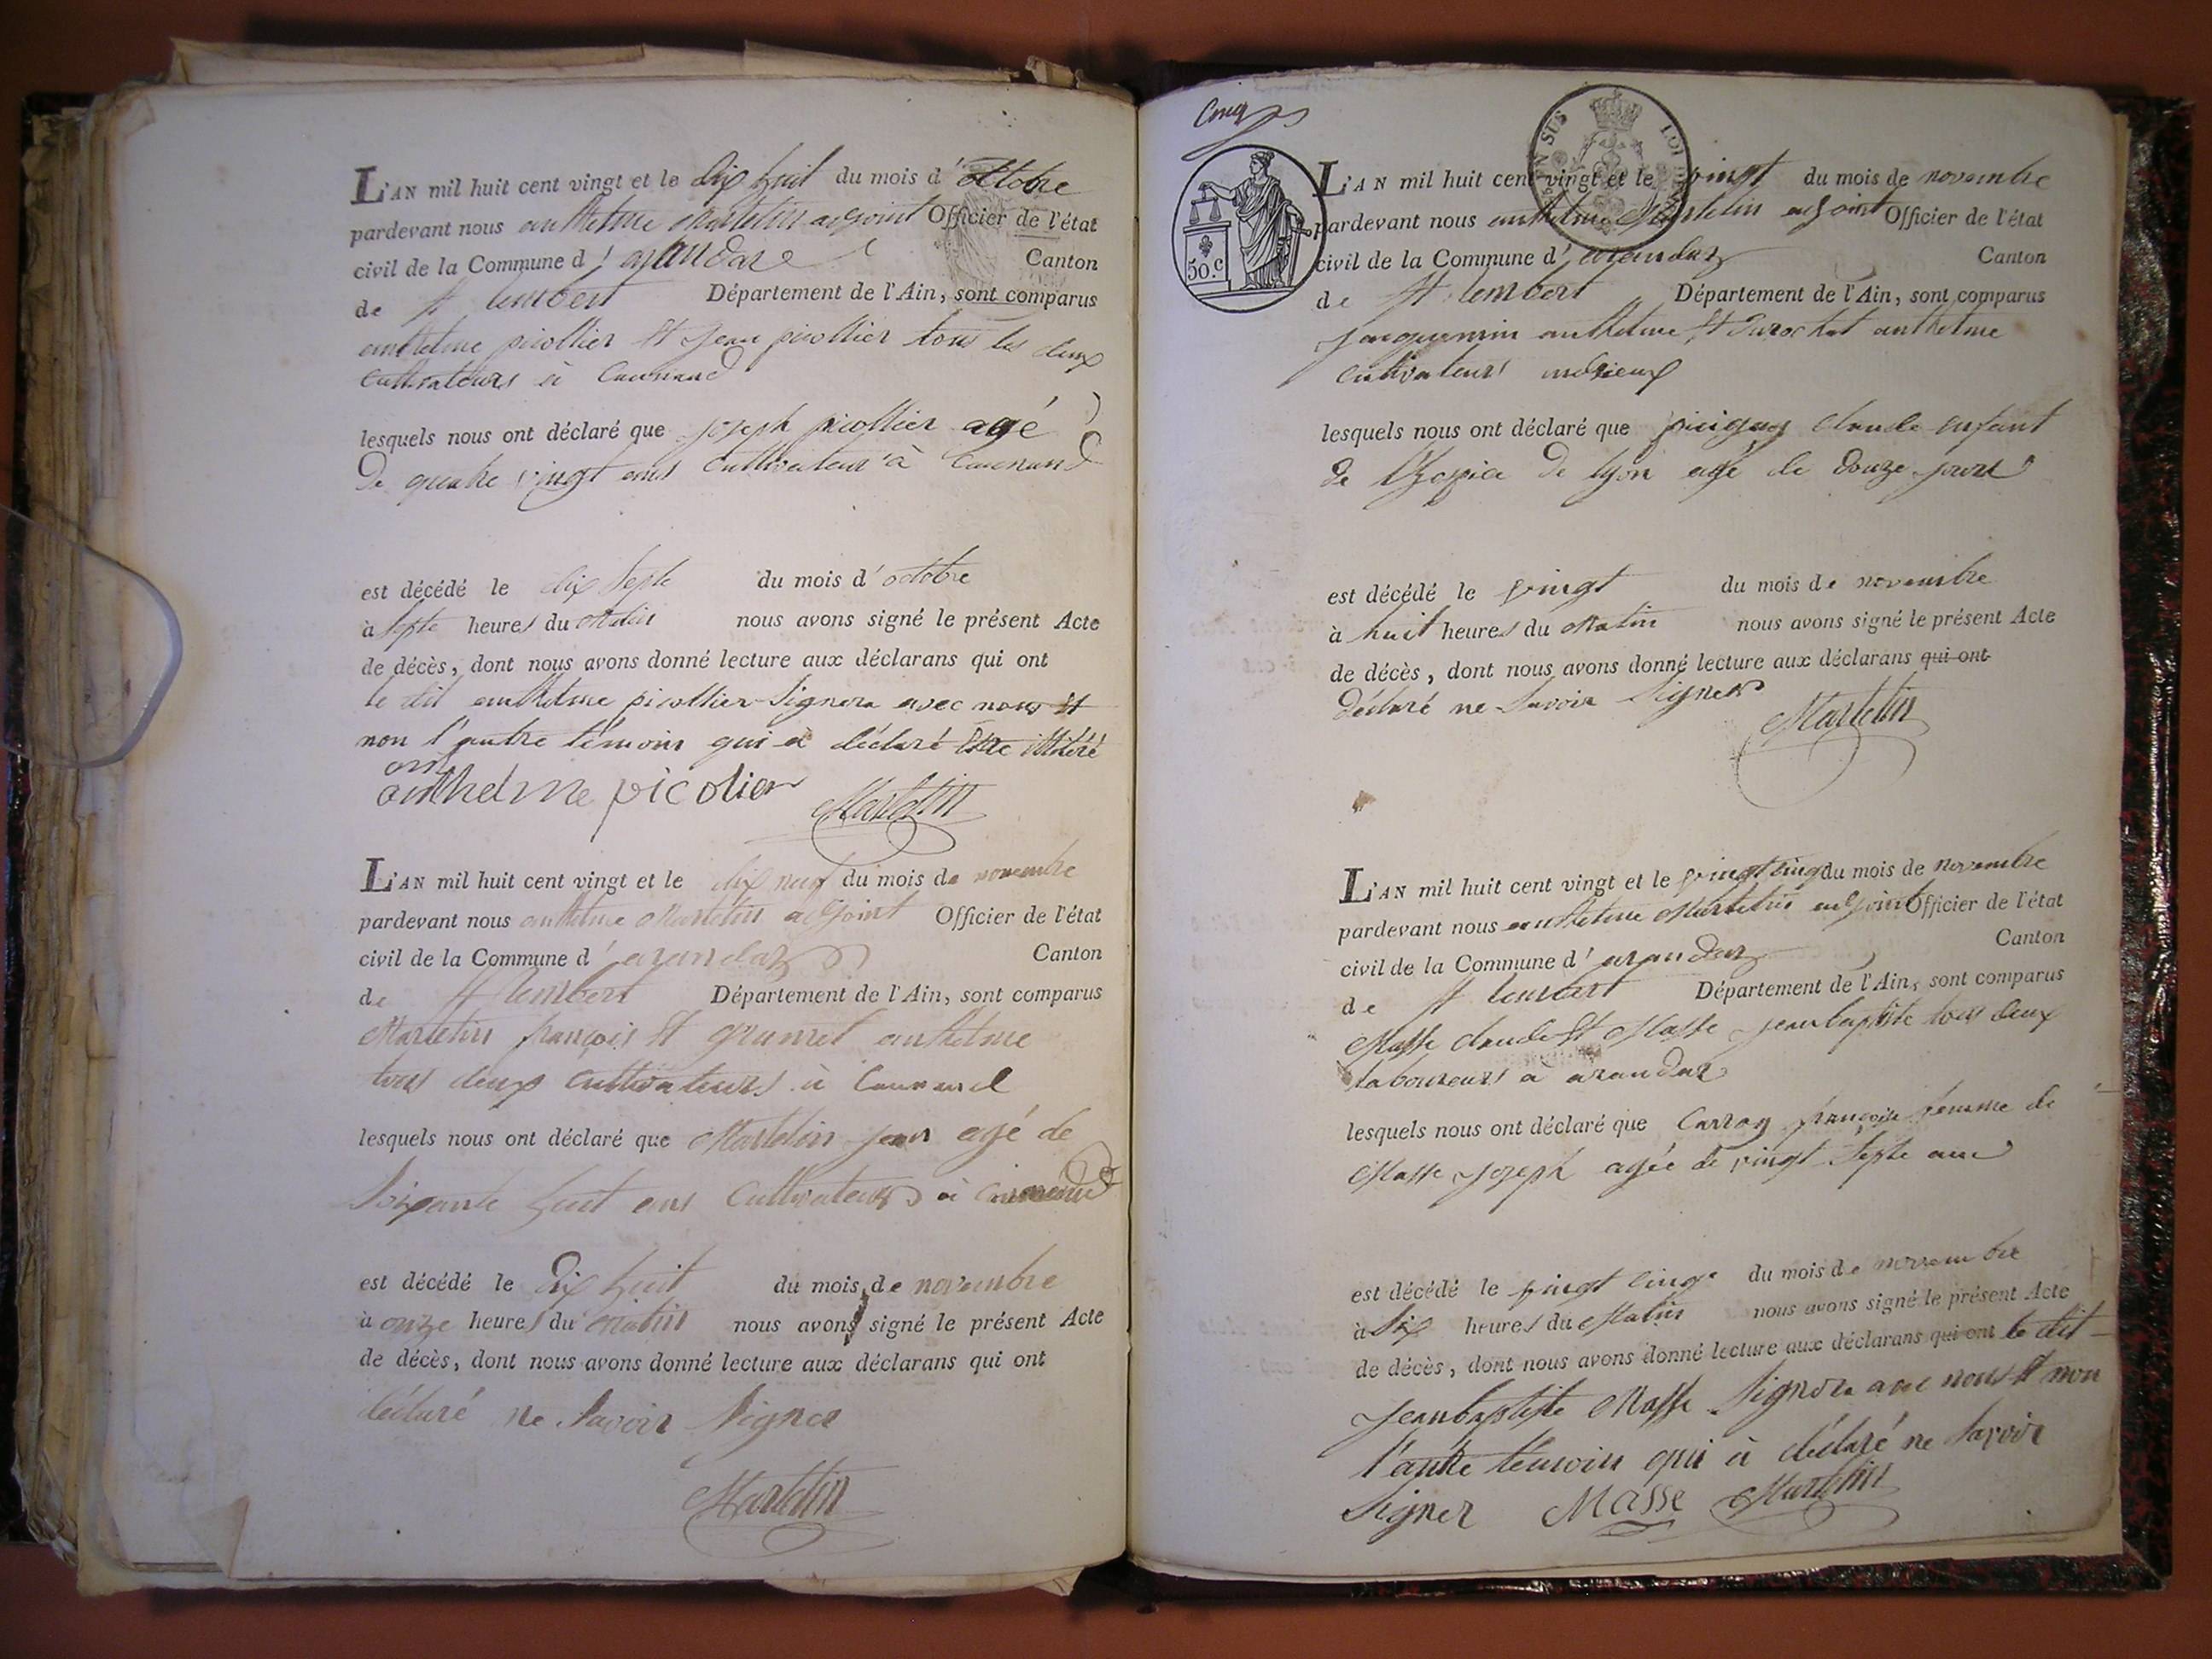 L'AN mil huit cent vingt et le dix huit du mois d'octobre
pardevant nous anthelme Martelin adjoint Officier de l'état
civil de la Commune d'arandaz Canton
de St lembert Département de l'Ain, sont comparus
anthelme picollier Et Jean picollier tous les deux
cultivateurs à
lesquels nous ont déclaré que joseph picollier agé
De quatre vingt ans cultivateur à
est décédé le dix Septe du mois d'octobre
à Septe heures du Matin nous avons signé le présent Acte
de décès, dont nous avons donné lecture aux déclarans qui ont
le dit anthelme picollier Signera avec nous Et
non l'autre témoin qui a déclaré Etre illitéré
anthelme picolier Martelin
L'AN mil huit cent vingt et le dix neuf du mois de novembre
pardevant nous anthelme Martelin adjoint Officier de l'état
civil de la Commune d'arandaz Canton
de St lembert Département de l'Ain, sont comparus
Martelin françois Et anthelme
tous deux cultivateurs à
lesquels nous ont déclaré que Martelin jean agé de
Soixante huit ans cultivateur à
est décédé le Dix huit du mois de novembre
à onze heures du matin nous avons signé le présent Acte
de décès, dont nous avons donné lecture aux déclarans qui ont
déclaré ne Savoir Signer
Martelin
Cinq
50.c
L'AN mil huit cent vingt et le vingt du mois de novembre
pardevant nous anthelme Martelin adjoint Officier de l'état
civil de la Commune d'arandaz Canton
de St lembert Département de l'Ain, sont comparus
Jacquemin anthelme Et Durochat anthelme
cultivateurs
lesquels nous ont déclaré que claude enfant
de l'hospice De lyon agé de Douze jours
est décédé le vingt du mois de novembre
à huit heures du Matin nous avons signé le présent Acte
de décès, dont nous avons donné lecture aux déclarans qui ont
Déclaré ne Savoir Signer
Martelin
L'AN mil huit cent vingt et le vingt cinq du mois de novembre
pardevant nous anthelme Martelin adjoint Officier de l'état
civil de la Commune d'arandaz Canton
de St lembert Département de l'Ain, sont comparus
Masse claude Et Masse jean baptiste tous deux
laboureurs à arandaz
lesquels nous ont déclaré que françoise femme de
Masse joseph agée de vingt Septe ans
est décédé le vingt cinq du mois de novembre
à Six heures du Matin nous avons signé le présent Acte
de décès, dont nous avons donné lecture aux déclarans qui ont le dit
Jean baptiste Masse Signera avec nous Et non
l'autre témoin qui à déclaré ne Savoir
Signer Masse Martelin